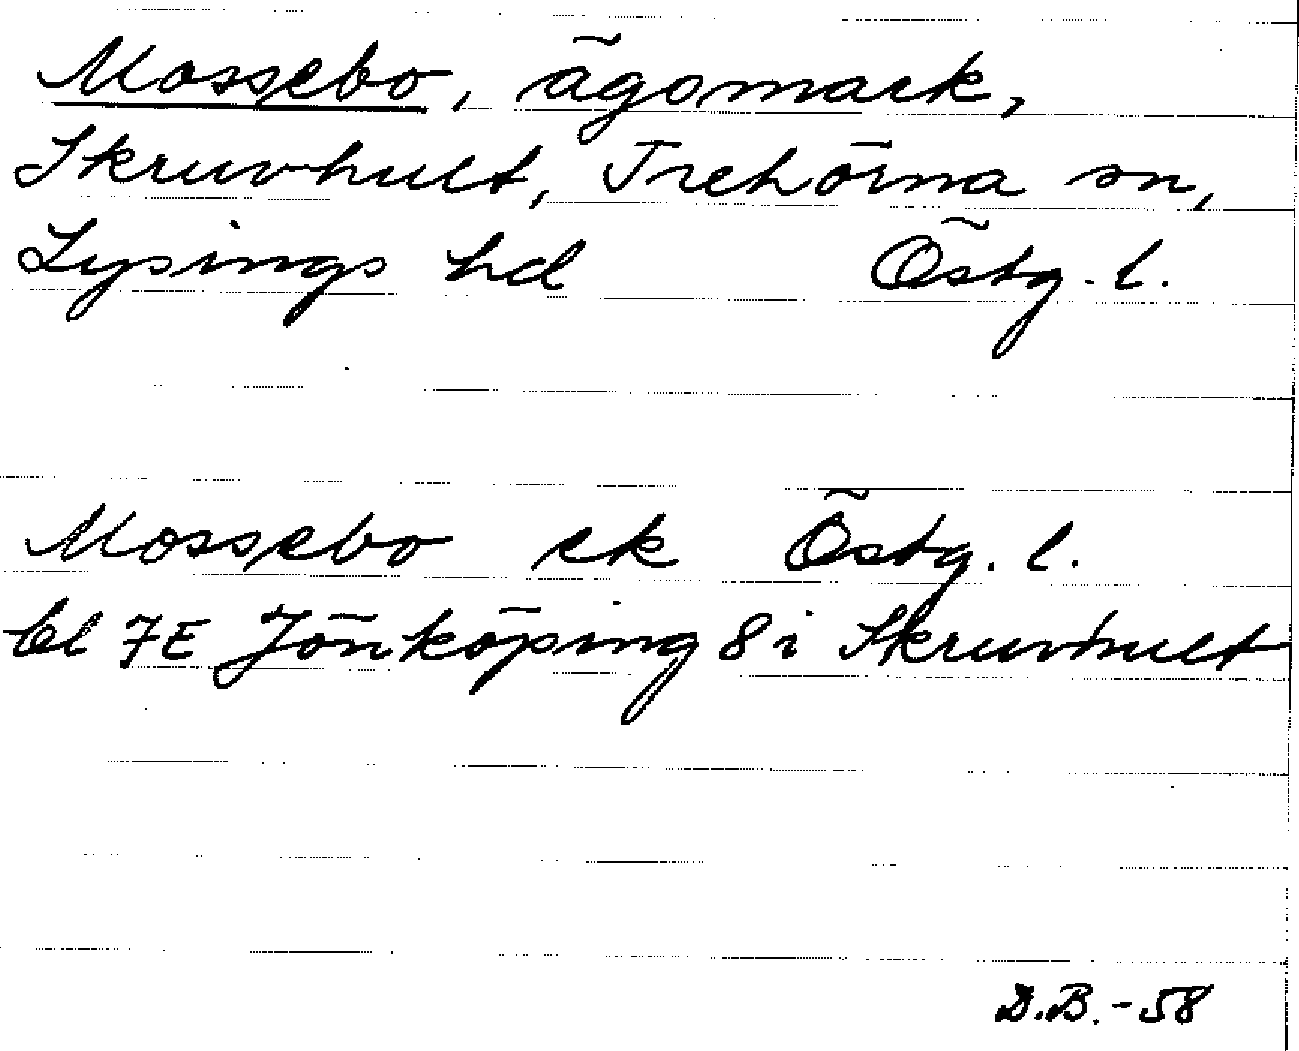 Mossebo, ägomark,
Skruvhult, Trehörna sn,
Lysings hd Östg. l.
Mossebo ek Östg. l.
bl 7E Jönköping 8 i Skruvhult
D.B. - 58